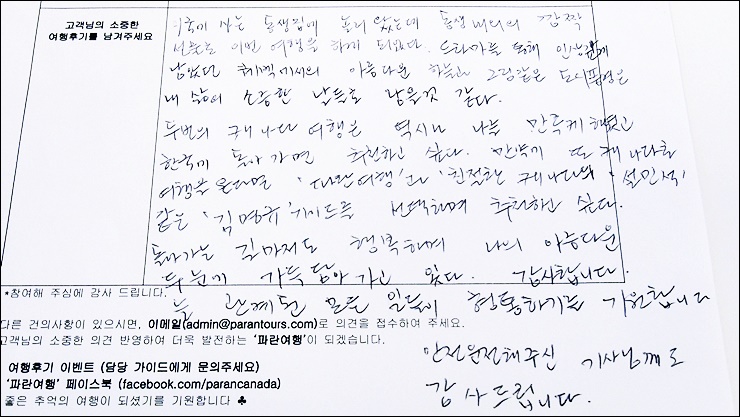 고객님의 소중한
여행후기를 남겨주세요
미국에 사는 동생집에 놀러 왔는데 동생 내외의 깜짝
선물로 이번 여행을 하게 되었다. 드라마를 통해 인상깊게
남았던 퀘벡에서의 아름다운 하늘과 그림같은 도시풍경은
내 삶에서 소중한 날들로 남을것 같다.
두번의 캐나다 여행은 역시나 나를 만족케 하였고
한국에 돌아가면 추천하고 싶다. 만약에 또 캐나다로
여행을 온다면 '파란여행'과 '친절한 캐나다의 설민석'
같은 '김명규' 가이드를 선택하며 추천하고 싶다.
돌아가는 길마저도 행복하며 나의 아름다운
두눈에 가득 담아 가고 있다. 감사합니다.
늘 관계된 모든 일들이 형통하기를 기원합니다
안전운전해주신 기사님께도
감사드립니다.
*참여해 주심에 감사 드립니다.
다른 건의사항이 있으시면, 이메일(admin@parantours.com)로 의견을 접수하여 주세요.
고객님의 소중한 의견 반영하여 더욱 발전하는 '파란여행'이 되겠습니다.
여행후기 이벤트 (담당 가이드에게 문의주세요)
'파란여행' 페이스북 (facebook.com/parancanada)
좋은 추억의 여행이 되셨기를 기원합니다 ♣